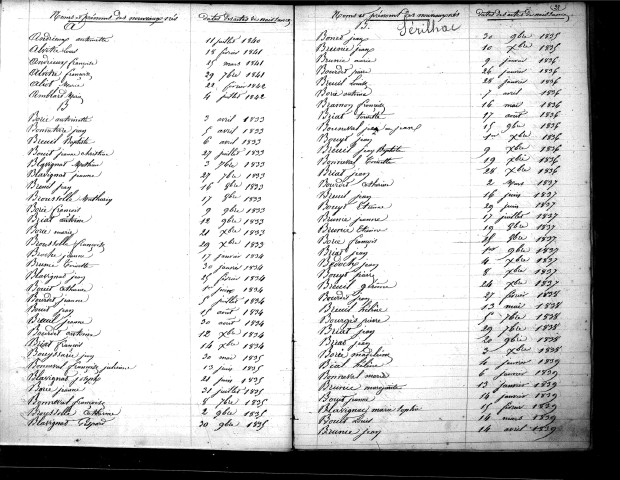 Noms et prénoms des nouveaux nés Dates des actes de naissance
A
Andrieux antoinette 11 juillet 1840
18 février 1841
Andrieux françoise 15 mars 1841
françois 29 7bre 1841
Albot Marie 22 février 1842
Amblard Marie 4 juillet 1842
B
Borie antoinette 3 avril 1833
jean 5 avril 1833
Breuil Baptiste 6 avril 1833
Bouit jeanne christine 27 juillet 1833
Blavignat Mathieu 3 7bre 1833
Blavignat jeanne 27 7bre 1833
Breuil jean 16 8bre 1833
Broustolle Mathurin 17 8bre 1833
Borie françois 9 9bre 1833
Briat antoine 12 9bre 1833
Borie marie 21 xbre 1833
Broustolle françoise 29 xbre 1833
Broche jeanne 17 janvier 1834
Brunie Toinette 30 janvier 1834
Blavignat jean 25 février 1834
Bouit Catherine juin 1834
Bourdet jeanne 5 juillet 1834
Bouit jean 15 août 1834
Breuil jeanne 30 août 1834
Bourdet antoine 12 xbre 1834
Briat françois 14 xbre 1834
Bouyssarie jean 30 mai 1835
Bonneval françoise julienne 13 juin 1835
Blavignat joseph 21 juin 1835
Borie jeanne 21 juillet 1835
Bonneval françoise 8 7bre 1835
Broustolle Catherine 2 9bre 1835
Blavignat 20 9bre 1835
Noms et prénoms des nouveaux nés Dates des actes de naissance
B. Sérilhac
Bonet jean 30 9bre 1835
Brunie jean 10 xbre 1835
Brunie marie 9 janvier 1836
Bourdet pierre 26 janvier 1836
Breuil 28 janvier 1836
Borie antoine 7 avril 1836
françois 16 mai 1836
Briat Toinette 17 août 1836
Bonneval jean 15 9bre 1836
Bouyt jean xbre 1836
Breuil jean Baptiste 9 xbre 1836
Bonneval Toinette 19 xbre 1836
Briat jean 28 xbre 1836
Bourdet Catherine 2 Mars 1837
Breuil jean 16 juin 1837
Bouyt Etienne 29 juin 1837
Brunie jeanne 17 juillet 1837
Brunie Etienne 19 8bre 1837
Borie françois 25 8bre 1837
Briat jean 9bre 1837
jean 4 xbre 1837
Bouyt pierre 8 xbre 1837
Breuil 24 xbre 1837
Bourdet jean 27 février 1838
Breuil hélène 13 mai 1838
Bourgés pierre 5 7bre 1838
Briat jean 29 7bre 1838
Briat jean 20 9bre 1838
Borie magdelaine 3 xbre 1838
Briat hélène 4 janvier 1839
Bonneval marie 6 janvier 1839
Brunie marguerite 13 janvier 1839
Bouyt jeanne 14 janvier 1839
Blavignac marie sophie 15 février 1839
Bouit Louis 14 mars 1839
Brunie jean 14 avril 1839